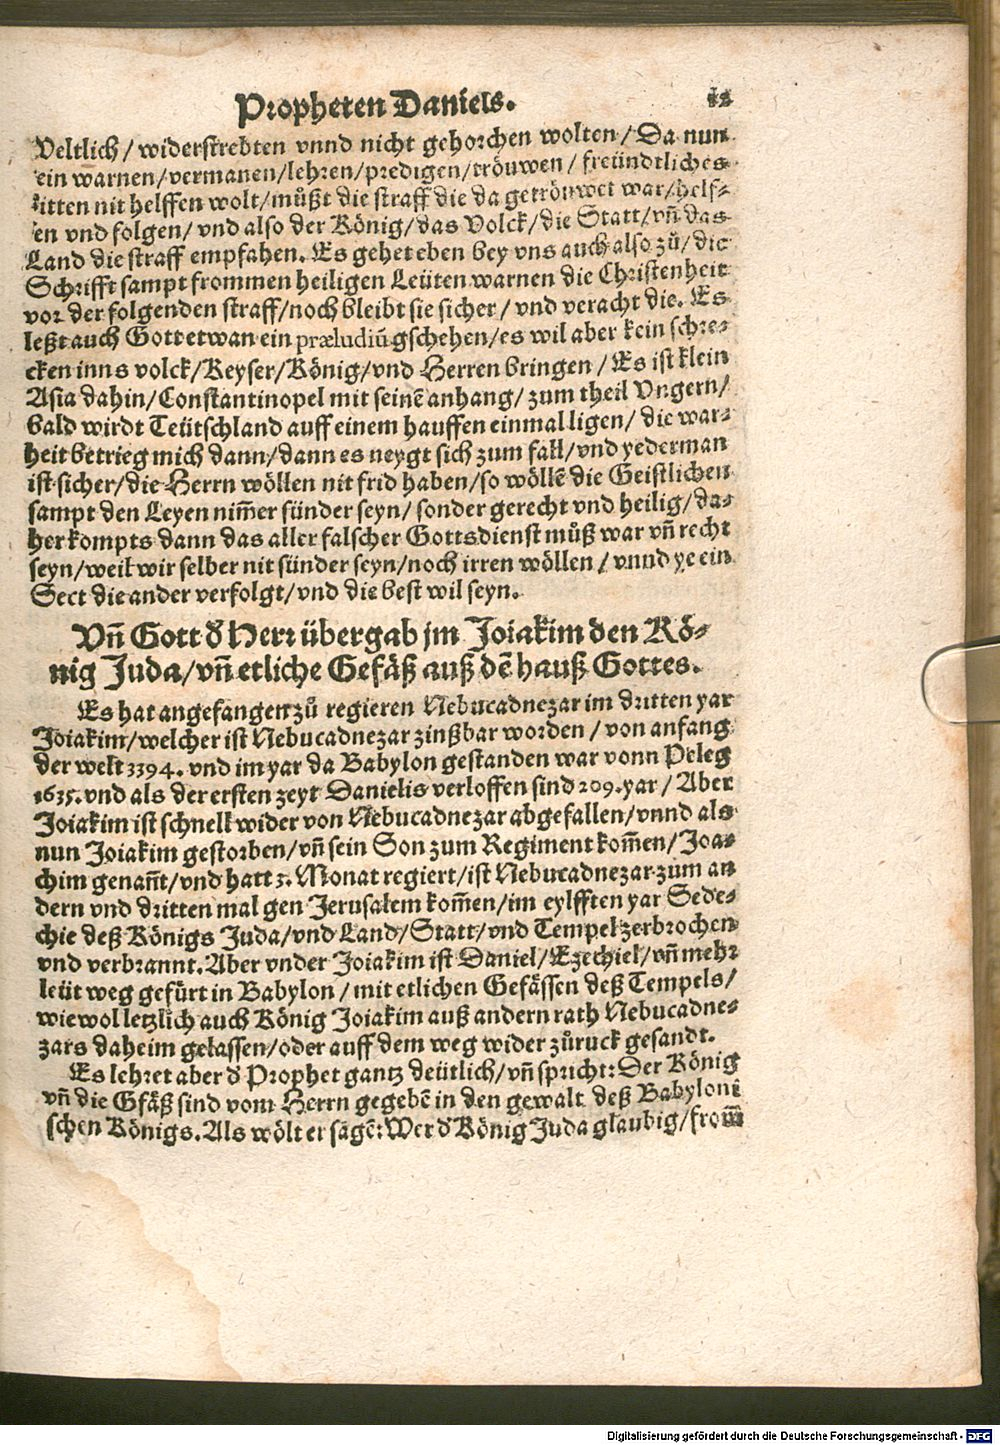 Propheten Daniels. 12
Veltlich/ widerstrebten vnnd nicht gehorchen wolten/ Da nun
ein warnen/vermanen/lehren/predigen/tröuwen/ freündtliches
itten nit helffen wolt/müßt die straff die da getröuwet war/helf-
en vnd folgen/ vnd also der König/das Volck/die Statt/vñ das
Land die straff empfahen. Es gehet eben bey vns auch also zů/ die
Schrifft sampt frommen heiligen Leüten warnen die Christenheit
vor der folgenden straff/noch bleibt sie sicher/ vnd veracht die. Es
leßt auch Gott etwan ein præludiũ gschehen/es wil aber kein schre-
cken inns volck/Keyser/König/vnd Herren bringen/ Es ist klein
Asia dahin/Constantinopel mit seinē anhang/ zum theil Vngern/
bald wirdt Teütschland auff einem hauffen einmal ligen/ die war-
heit betrieg mich dann/dann es neygt sich zum fall/vnd yederman
ist sicher/die Herrn wöllen nit frid haben/so wöllē die Geistlichen
sampt den Leyen nim̃er sünder seyn/ sonder gerecht vnd heilig/da-
her kompts dann das aller falscher Gottsdienst můß war vñ recht
seyn/weil wir selber nit sünder seyn/noch irren wöllen/ vnnd ye ein
Sect die ander verfolgt/vnd die best wil seyn.
Vñ Gott d̕ Herr übergab jm Joiakim den Kö-
nig Juda/vñ etliche Gefäß auß dē hauß Gottes.
Es hat angefangen zů regieren Nebucadnezar im dritten yar
Joiakim/welcher ist Nebucadnezar zinßbar worden/ von anfang
der welt 3394. vnd im yar da Babylon gestanden war vonn Peleg
1635. vnd als der ersten zeyt Danielis verloffen sind 209. yar/ Aber
Joiakim ist schnell wider von Nebucadnezar abgefallen/vnnd als
nun Joiakim gestorben/vñ sein Son zum Regiment kom̃en/Joa-
chim genañt/vnd hatt 3. Monat regiert/ist Nebucadnezar zum an
dern vnd dritten mal gen Jerusalem kom̃en/im eylfften yar Sede-
chie deß Königs Juda/vnd Land/Statt/vnd Tempel zerbrochen
vnd verbrannt. Aber vnder Joiakim ist Daniel/Ezechiel/vñ mehr
leüt weg gefürt in Babylon/ mit etlichen Gefässen deß Tempels/
wiewol letzlich auch König Joiakim auß andern rath Nebucadne-
zars daheim gelassen/oder auff dem weg wider zůruck gesandt.
Es lehret aber d̕ Prophet gantz deütlich/vñ spricht: Der König
vñ die Gfäß sind vom Herrn gegebē in den gewalt deß Babyloni
schen Königs. Als wölt er sagē: Wer d̕ König Juda glaubig/from̃
Digitalisierung gefördert durch die Deutsche Forschungsgemeinschaft - DFG